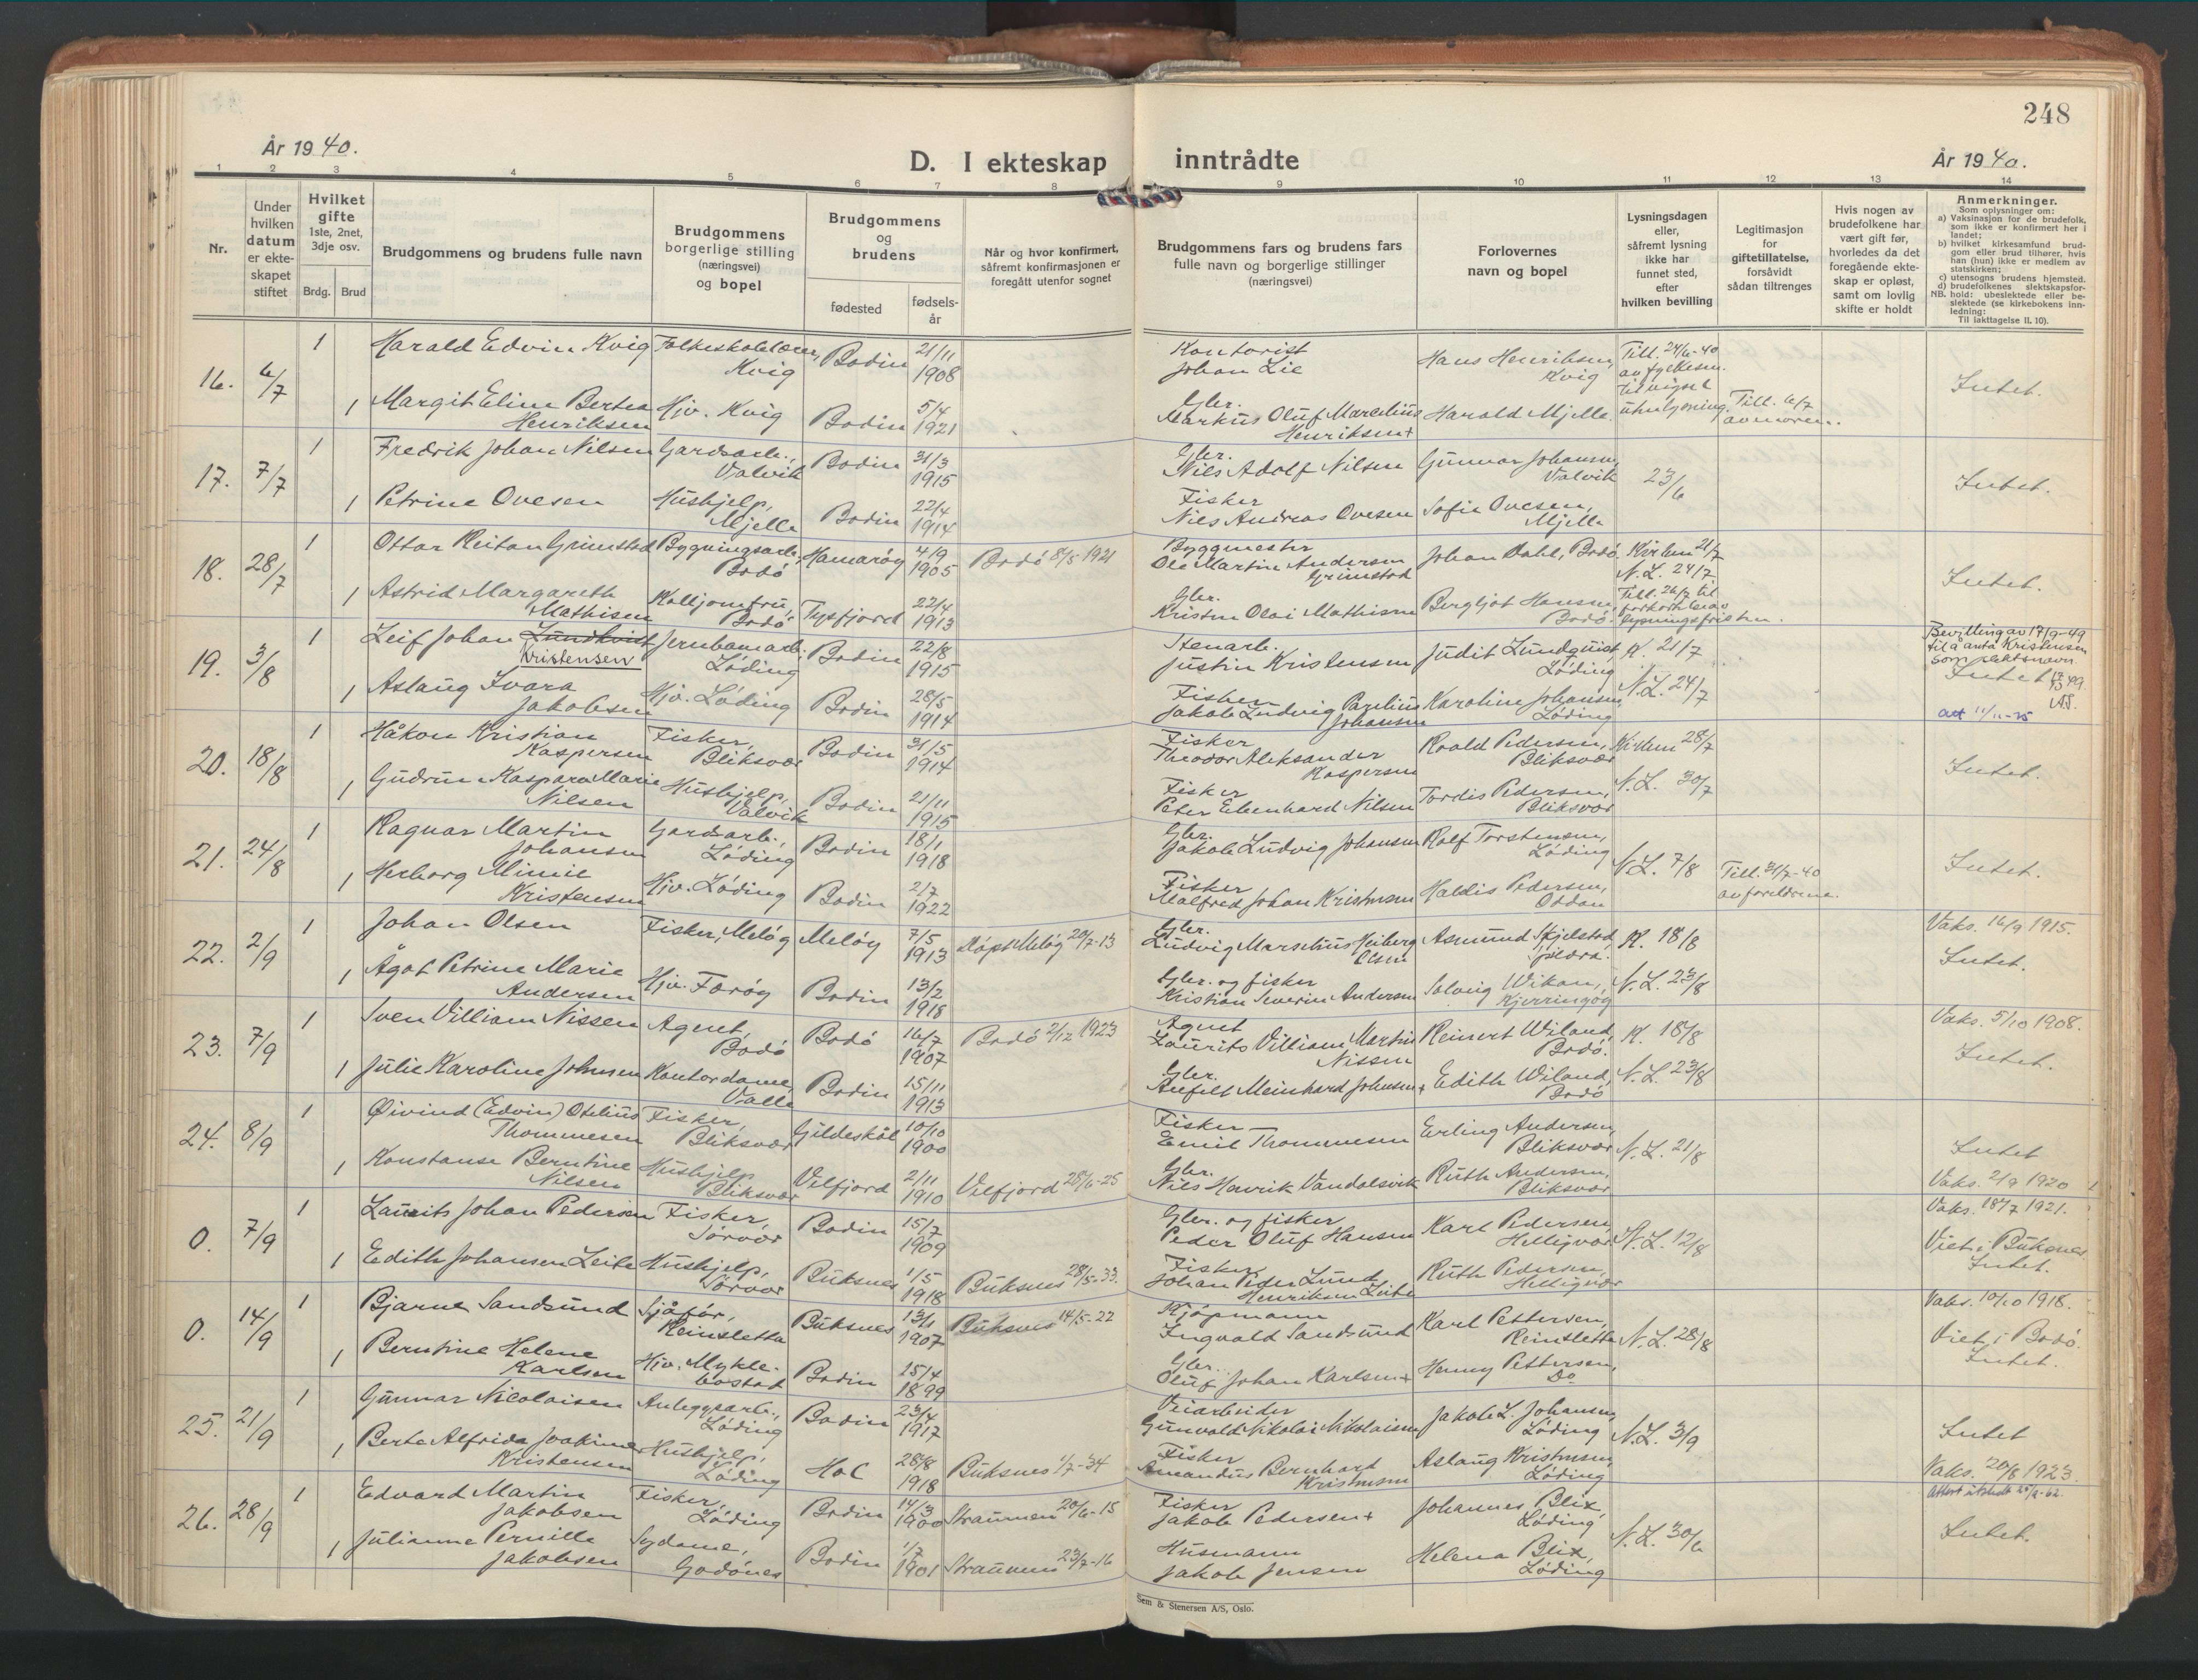 248
År 1940.
D. I ekteskap inntrådte
År 1940.
1 2 3 4 5 6 7 8 9 10 11 12 13 14
Nr.
Under
hvilken
datum
er ekte-
skapet
stiftet
Hvilket
gifte
1ste, 2net,
3dje osv.
Brdg. Brud
Brudgommens og brudens fulle navn
Brudgommens
borgerlige stilling
(næringsvei)
og bopel
Brudgommens
og
brudens
fødested
fødsels-
år
Når og hvor konfirmert,
såfremt konfirmasjonen er
foregått utenfor sognet
Brudgommens fars og brudens fars
fulle navn og borgerlige stillinger
(næringsvei)
Forlovernes
navn og bopel
Lysningsdagen
eller,
såfremt lysning
ikke har
funnet sted,
efter
hvilken bevilling
Legitimasjon
for
giftetillatelse,
forsåvidt
sådan tiltrenges
Hvis nogen av
brudefolkene har
vært gift før,
hvorledes da det
foregående ekte-
skap er opløst,
samt om lovlig
skifte er holdt
Anmerkninger.
Som oplysninger om:
a) Vaksinasjon for de brudefolk,
som ikke er konfirmert her i
landet;
b) hvilket kirkesamfund brud-
gom eller brud tilhører, hvis
han (hun) ikke er medlem av
statskirken;
c) utensogns brudens hjemsted.
d) brudefolkenes slektskapsfor-
NB. hold: ubeslektede eller be-
slektede (se kirkebokens inn-
ledning:
Til iakttagelse II, 10).
16. 6/7
1 Harald Edvin Kvig Folkeskolelærer, Kvig Bodin 21/11 1908
Kontorist
Johan Lie
Hans Henriksen, Kvig
Till. 24/6-40
av fylkesm.
til vigsel
uten lysning.
1 Margit Eline Bertea
Henriksen
Hjv. Kvig Bodin 5/4 1921
Gbr.
Markus Oluf Marelius
Henriksen +
Harald Mjelle.
Till. 6/7
av moren.
Intet.
17. 7/7
1 Fredrik Johan Nilsen Gardsarb., Valvik Bodin 31/3 1915
Gbr.
Nils Adolf Nilsen
Gunnar Johansen, Valvik
23/6
1 Petrine Ovesen Hushjelp, Mjelle Bodin 22/4 1914
Fisker
Nils Andreas Ovesen
Sofie Ovesen, Mjelle
Intet.
18. 28/7
1 Ottar Reitan Grimstad Bygningsarb., Bodö Hamaröy 4/9 1905 Bodö 8/5 1921
Byggmester
Ole Martin Andersen
Grimstad
Johan Dahl, Bodö
Kirken 21/7
N.L. 24/7
1 Astrid Margareth
Mathisen
Bodö Tysfjord 22/4 1913
Gbr.
Kristen Olai Mathisen
Bergljot Hansen, Bodö
Till. 26/7 til
forkortelse av
lysningsfristen.
Intet.
19. 3/8
1 Leif Johan Lundkvist
Kristensen
Jernbanearb. Löding Bodin 22/8 1915
Stenarb.
Justin Kristensen
Judit Lundquist, Löding
K. 21/7
N.L. 24/7
Bevilling av 17/9-49
til å anta Kristensen
som slektsnavn
1 Aslaug Ivara
Jakobsen
Hjv. Löding Bodin 28/5 1914
Fisker
Jakob Ludvig Parelius
Johansen
Karoline Johansen, Löding
Intet
20. 18/8
1 Håkon Kristian
Kaspersen
Fisker, Bliksvær Bodin 31/5 1914
Fisker
Theodor Aleksander
Kaspersen
Roald Pedersen, Bliksvær
Kirken 28/7
N.L. 30/7
1 Gudrun Kaspara Marie
Nilsen
Hushjelp, Valvik Bodin 21/11 1915
Fisker
Peter Edenhard Nilsen
Tordis Pedersen, Bliksvær
Intet.
21. 24/8
1 Ragnar Martin
Johansen
Gardsarb., Löding Bodin 18/1 1918
Gbr.
Jakob Ludvig Johansen
Rolf Torstensen, Löding
N.L. 7/8
Till. 31/7-40
av foreldrene.
1 Herborg Minie
Kristensen
Hjv. Löding Bodin 2/7 1922
Fisker
Malfred Johan Kristensen
Haldis Pedersen, Oddan
Intet.
22. 2/9
1 Johan Olsen Fisker, Melöy Melöy 7/5 1913 20/7-13
Gbr.
Ludvig Marselius Heiberg
Olsen
Asmund Skjelstad,
K. 18/8
N.L. 23/8
Vaks. 16/9 1915.
1 Ågot Petrine Marie
Andersen
Hjv. Færöy Bodin 13/2 1918
Gbr. og fisker
Kristian Severin Andersen
Solveig Wikan, Kjerringöy
Intet.
23. 7/9
1 Sven Villiam Nissen Agent, Bodö Bodö 16/7 1907 Bodö 2/12 1923
Agent
Laurits Villiam Martin
Nissen
Reinert Wiland, Bodö.
K. 18/8
N.L. 23/8
Vaks. 5/10 1908.
1 Julie Karoline Johnsen Kontordame, Valle Bodin 15/11 1913
Gbr.
Anfelt Meinhard Johnsen +
Edith Wiland, Bodö
Intet.
24. 8/9
1 Øivind (Edvin) Otelius
Thommesen
Fisker, Bliksvær Gildeskål 10/10 1900
Fisker
Emil Thommesen
Erling Andersen, Bliksvær
N.L. 21/8
1 Konstanse Berntine
Nilsen
Hushjelp Bliksvær Velfjord 2/11 1910 Velfjord 28/6-25
Gbr.
Nils Henrik Vandalsvik
Ruth Andersen, Bliksvær
Intet
Vaks. 2/9 1920
0. 7/9
1 Laurits Johan Pedersen Fisker, Sörvær Bodin 15/7 1909
Gbr. og fisker
Peder Oluf Hansen
Karl Pedersen, Helligvær
N.L. 12/8
Vaks. 18/7 1921.
1 Edith Johansen Leite Hushjelp, Sörvær Buksnes 1/5 1918 Buksnes 28/5-33.
Fisker
Johan Peder Lund
Henriksen Leite
Ruth Pedersen, Helligvær
Viet i Buksnes
Intet.
0. 14/9
1 Bjarne Sandsund Sjåför, Reinsletta Buksnes 13/1 1907 Buksnes 14/5-22
Kjöpmann
Ingvald Sandsund
Karl Pettersen, Reinsletta
N.L. 28/8
Vaks. 10/10 1918.
1 Berntine Helene
Karlsen
Hjv. Myklebostad Bodin 15/4 1899
Gbr.
Oluf Johan Karlsen +
Henny Pettersen, Do
Viet i Bodö.
Intet.
25. 21/9
1 Gunnar Nicolaisen Anleggsarb., Löding Bodin 23/4 1917
Veiarbeider
Gunvald Nikolai Nikolaisen
Jakob L. Johansen, Löding
N.L. 3/9
1 Berte Alfrida Joakime
Kristensen
Hushjelp, Löding Hol 28/8 1918 Buksnes 1/7-34
Fisker
Amandus Bernhard
Kristensen
Aslaug Kristensen, Löding
Intet
Vaks. 20/8 1923.
26. 28/9
1 Edvard Martin
Jakobsen
Fisker, Löding Bodin 14/3 1900 Straumen 20/6-15
Fisker
Jakob Pedersen +
Johannes Blix, Löding
N.L. 30/6
1 Julianne Pernille
Jakobsen
Sydame, Godönes Bodin 1/7 1901 Straumen 23/7-16
Husmann
Jakob Jensen
Helena Blix, Löding
Intet.
Sem & Stenersen A/S, Oslo.